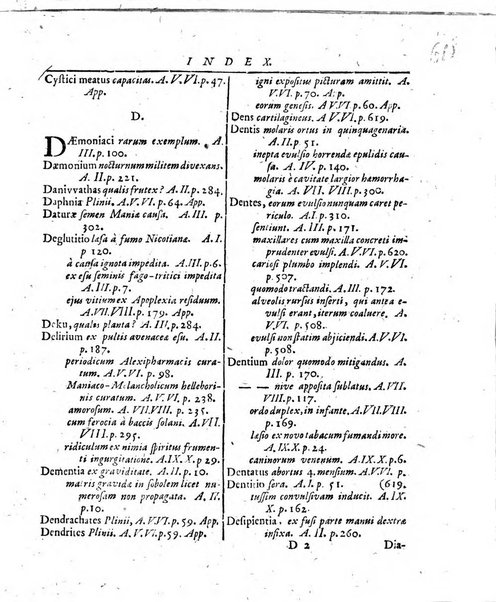 INDEX.
Cystici meatus capacitas. A. V. VI. p. 47.
App.
D.
DÆmoniaci rarum exemplum. A.
III. p. 100.
Dæmonium nocturnum militem divexans.
A. II. p. 221.
Danivvathas qualis frutex? A. II. p. 284.
Daphniæ Plinii. A. V. VI. p. 64. App.
Daturæ semen Mania causa. A. III. p.
302.
Deglutitio læsa à fumo Nicotianæ. A. I.
p 120.
à causa ignota impedita. A. III. p. 86.
ex esu seminis fago-tritici impedita
A. III. p. 7.
ejus vitium ex Apoplexia residuum.
A. VII. VIII. p. 179. App.
Deku, qualis planta? A. II. p. 284.
Delirium ex pultis avenacea esu. A. II.
p. 187.
periodicum Alexipharmacis cura-
tum. A. V. VI. p. 98.
Maniaco-Melancholicum hellebori-
nis curatum. A. VII. VIII. p. 235.
amorosum. A. VII. VIII. p. 235.
cum ferocia à baccis solani. A. VII.
VIII. p. 295.
ridiculum ex nimia spiritus frumen-
ti ingurgitatione. A. IX. X. p 29.
Dementia ex graviditate. A. II. p. 10.
maris gravidæ in sobolem licet nu
merosam non propagata. A. II.
p. 10.
Dendrachates Plinii. A. V. VI. p. 59. App.
Dendrites Plinii. A. V. VI. p. 59. App.
igni expositus picturam amittit. A.
V. VI. p. 70. A. p.
eorum genesis. A. V. VI p. 60. App.
Dens cartilagineus. A. V. VI. p. 619.
Dentis molaris ortus in quinquagenaria.
A. II. p 51.
inepta evulsio horrendæ epulidis cau-
sa. A. IV. p. 140.
molaris è cavitate largior hæmorrha-
gia. A. VII. VIII. p. 300.
Dentes, eorum evulsio nunquam caret pe-
riculo. A. I. p. 310.
sentiunt. A. III. p. 171.
maxillares cum maxilla concreti im-
prudenter evulsi. A. V. VI. p. 620.
cariosi plumbo implendi. A. V. VI.
p. 507.
quomodo tractandi. A. III. p. 172.
alveolis rursus inserti, qui antea e-
vulsi erant, iterum coaluere. A. V.
VI. p. 508.
evulsi non statim abjiciendi. A. V. VI.
p. 508.
Dentium dolor quomodo mitigandus. A.
III. p. 170.
— — nive apposita sublatus. A. VII.
VIII. p. 117.
ordo duplex, in infante. A. VII. VIII
p. 169.
læsio ex novo tabacum fumandi more.
A. IX. X. p. 104.
caninorum venenum. A. IX. X. p. 6.
Dentatus abortus 4. mensium. A. V. VI. p.
Dentitio sera. A. II. p. 51. (619.
tussim convulsivam inducit. A. IX.
X. p. 162.
Desipientia. ex fusi parte manui dextræ
infixa. A. II. p. 260.
D 2 Dia-